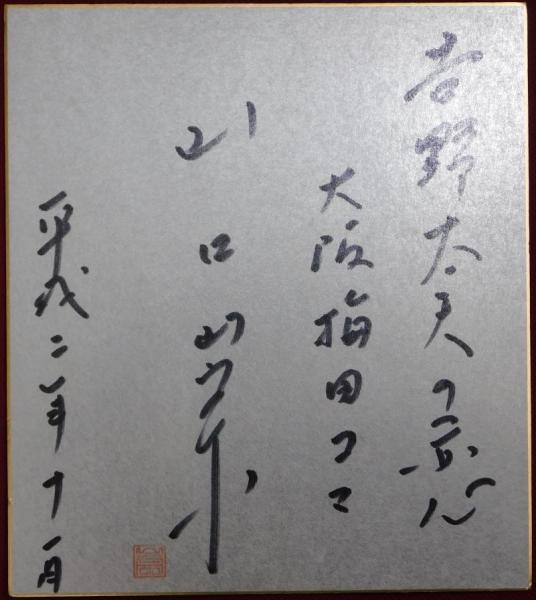 吉野太夫の恋
大阪梅田コマ
山口崇
平成二年十一月